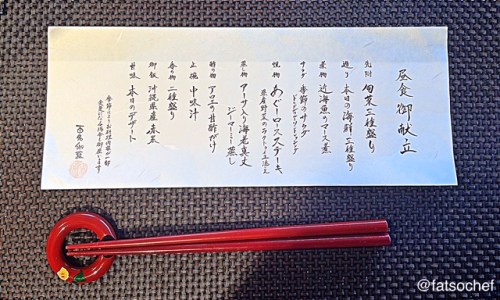 昼食御献立
先附 旬菜三種盛り
造り 本日の海鮮二種盛り
煮物 近海魚のマース煮
サラダ 季節のサラダ
焼物 あぐーロースステーキ
蒸し物 アーサ入り海老真丈
ジーマーミー蒸し
酢の物 アロエの甘酢がけ
止椀 中味汁
香の物 二種盛り
御飯 沖縄県産 香米
甘味 本日のデザート
@fatsochef